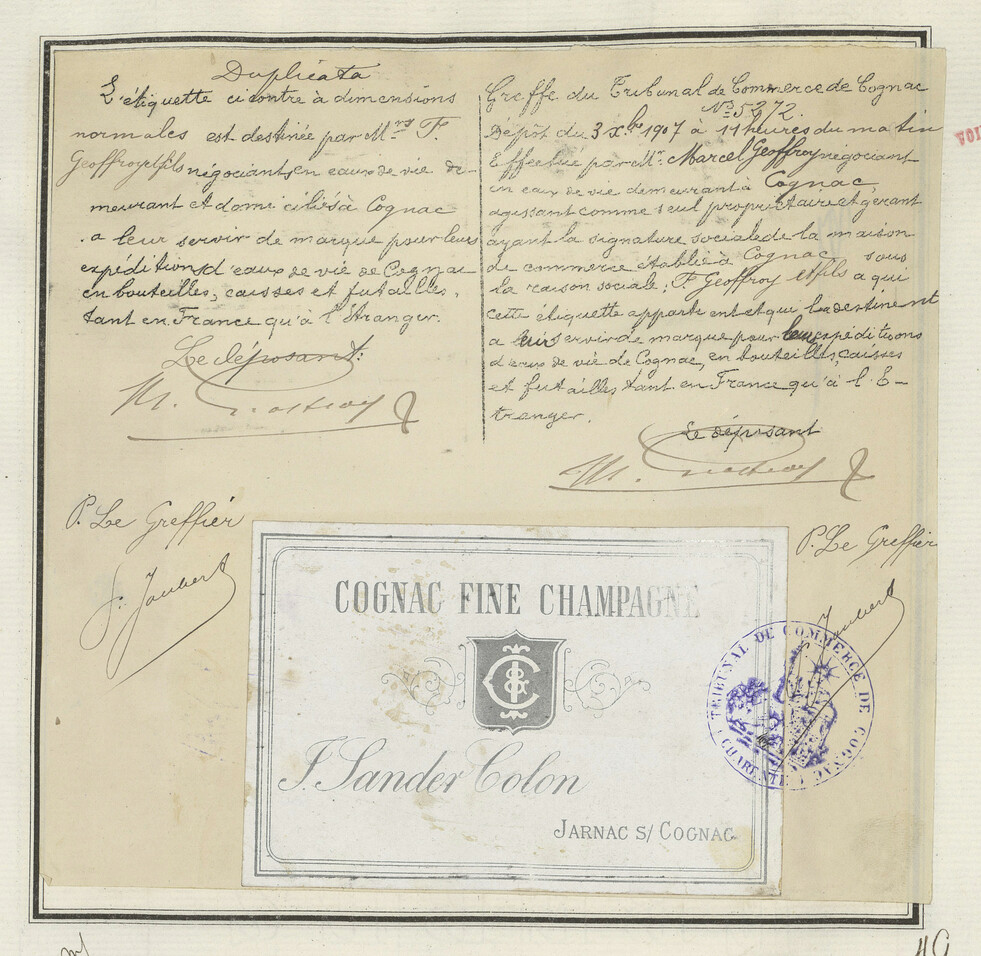 Duplicata
L'étiquette ci contre à dimensions
normales est destinée par M.rs F.
Geoffroy et fils négociants en eaux de vie de-
meurant et domiciliés à Cognac
a leur servir de marque pour leurs
expéditions d'eaux de vie de Cognac
en bouteilles, caisses et futailles,
tant en France qu'à l'Etranger.
Le déposant:
M. Geoffroy
P. Le Greffier
Joubert
Greffe du Tribunal de Commerce de Cognac
N° 5272.
Dépôt du 3 Xbre 1907 à 11 heures du matin
Effectué par Mr. Marcel Geoffroy négociant
en eaux de vie demeurant à Cognac,
agissant comme seul propriétaire et gérant
ayant la signature sociale de la maison
de commerce établie à Cognac, sous
la raison sociale; F Geoffroy et fils a qui
cette étiquette appartient et qui la destinent
a leur servir de marque pour leurs expéditions
d'eaux de vie de Cognac, en bouteilles, caisses
et futailles, tant en France qu'à l'E-
tranger.
Le déposant
M. Geoffroy
P. Le Greffier
Joubert
COGNAC FINE CHAMPAGNE
J. Sander Colon
JARNAC S/ COGNAC
TRIBUNAL DE COMMERCE DE COGNAC
CHARENTE